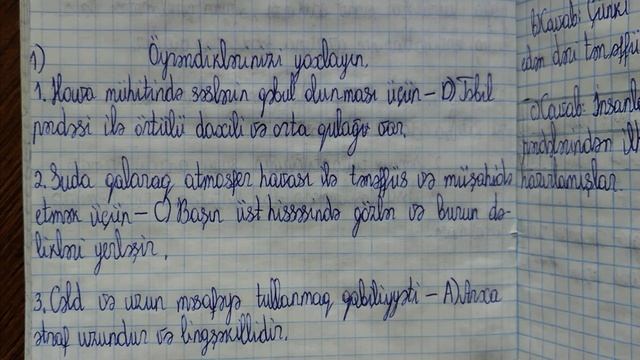 1) Öyrəndiklərinizi yoxlayın.
1. Hava mühitində səslərin qəbul olunması üçün – D) Təbil
pərdəsi ilə örtülü daxili və orta qulağı var.
2. Suda qalaraq atmosfer havası ilə tənəffüs və müşahidə
etmək üçün – C) Başın üst hissəsində gözlər və burun də-
likləri yerləşir.
3. Cəld və uzun məsafəyə tullanmaq qabiliyyəti – A) Arxa
ətraf uzundur və lingşəkillidir.
b) Cavab: Çünki
edən dəri tənəffüs
c) Cavab: İnsanla
ilk
hazırlamışlar.